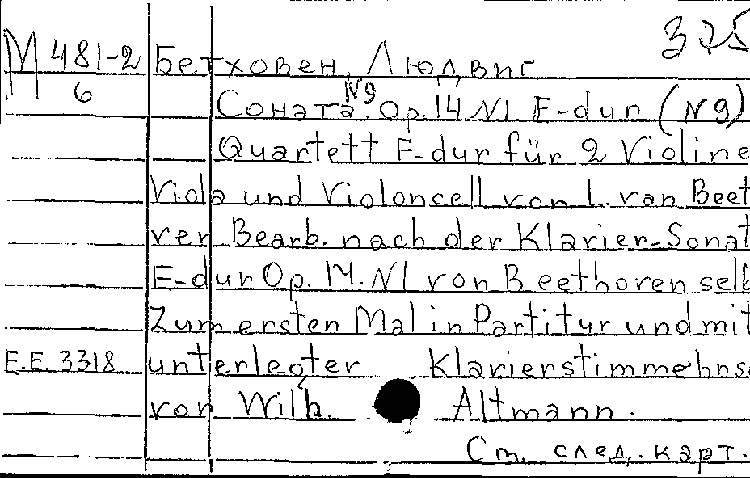 375
M 481-2 Бетховен, Людвиг
6
Соната №9. Op. 14 N1 E-dur (N9)
Quartett F-dur für 2 Violine
Viola und Violoncell von L. van Beet
ver Bearb. nach der Klavier-Sonat
E-dur Op. 14. N1 von Beethoven selb
Zum ersten Mal in Partitur und mit
E.E. 3318 unterlegter Klavierstimme
von Wilh. Altmann.
См. след. карт.